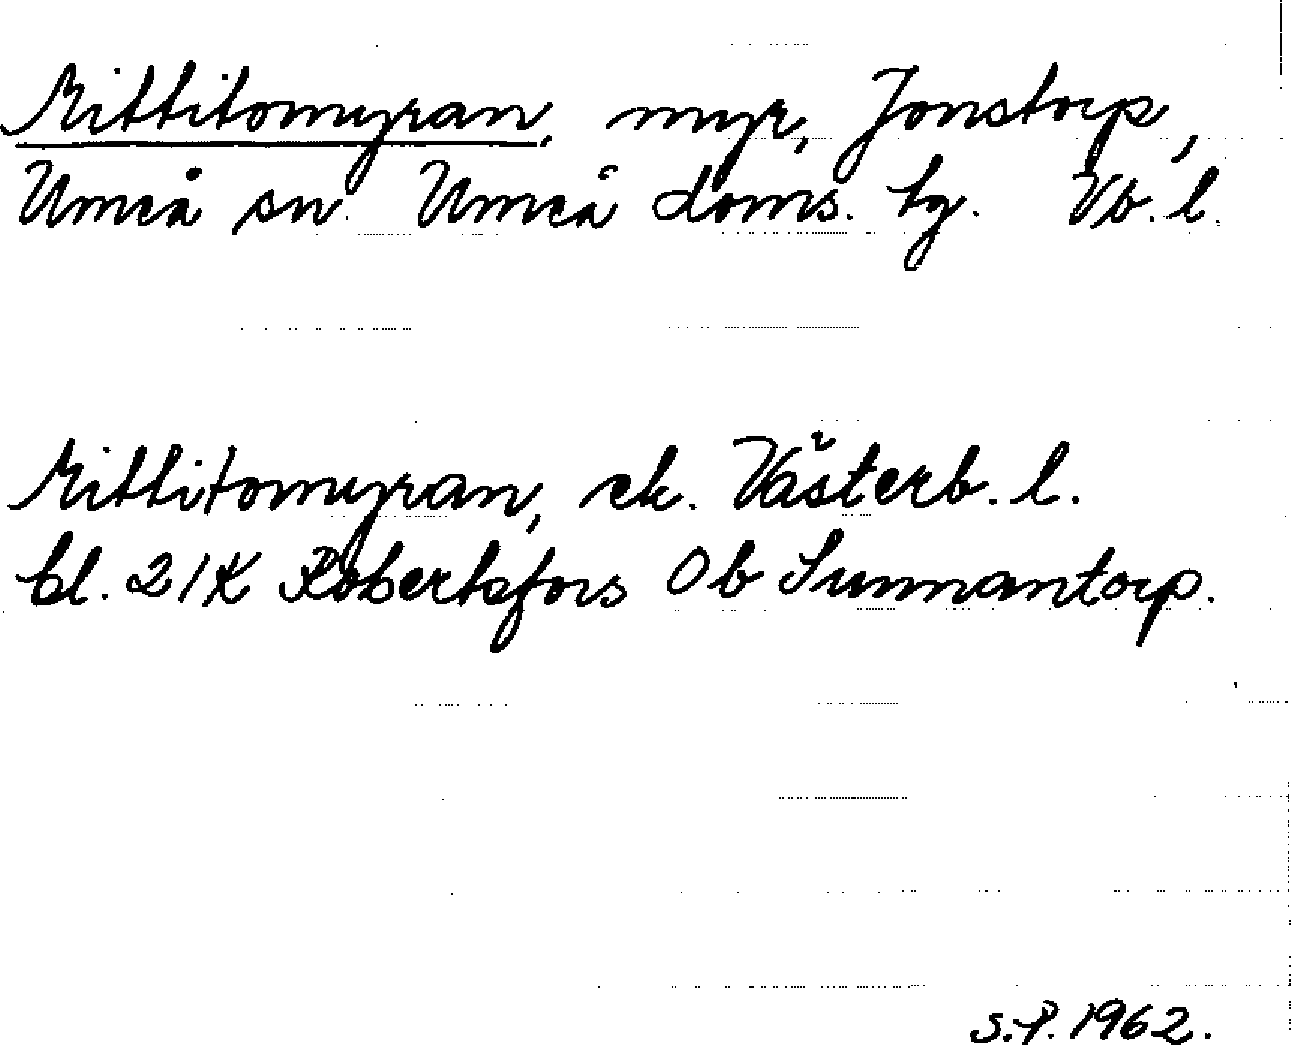 Nittitomyran, myr, Jonstorp,
Umeå sn. Umeå doms. tg. Vb. l.
Nittitomyran, ek. Västerb. l.
bl. 21K Robertsfors 0b Sunnantorp.
S.P. 1962.